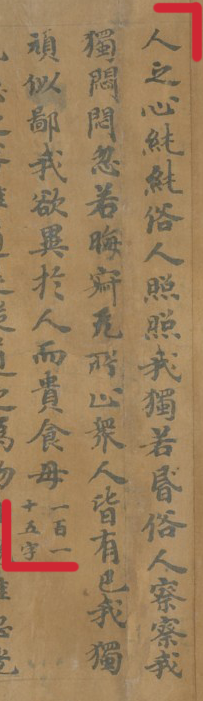 人之心純純俗人照照我獨若昬俗人察察我
獨悶悶忽若晦寂无所止衆人皆有已我獨
頑似鄙我欲異於人而貴食母
一百一
十五字